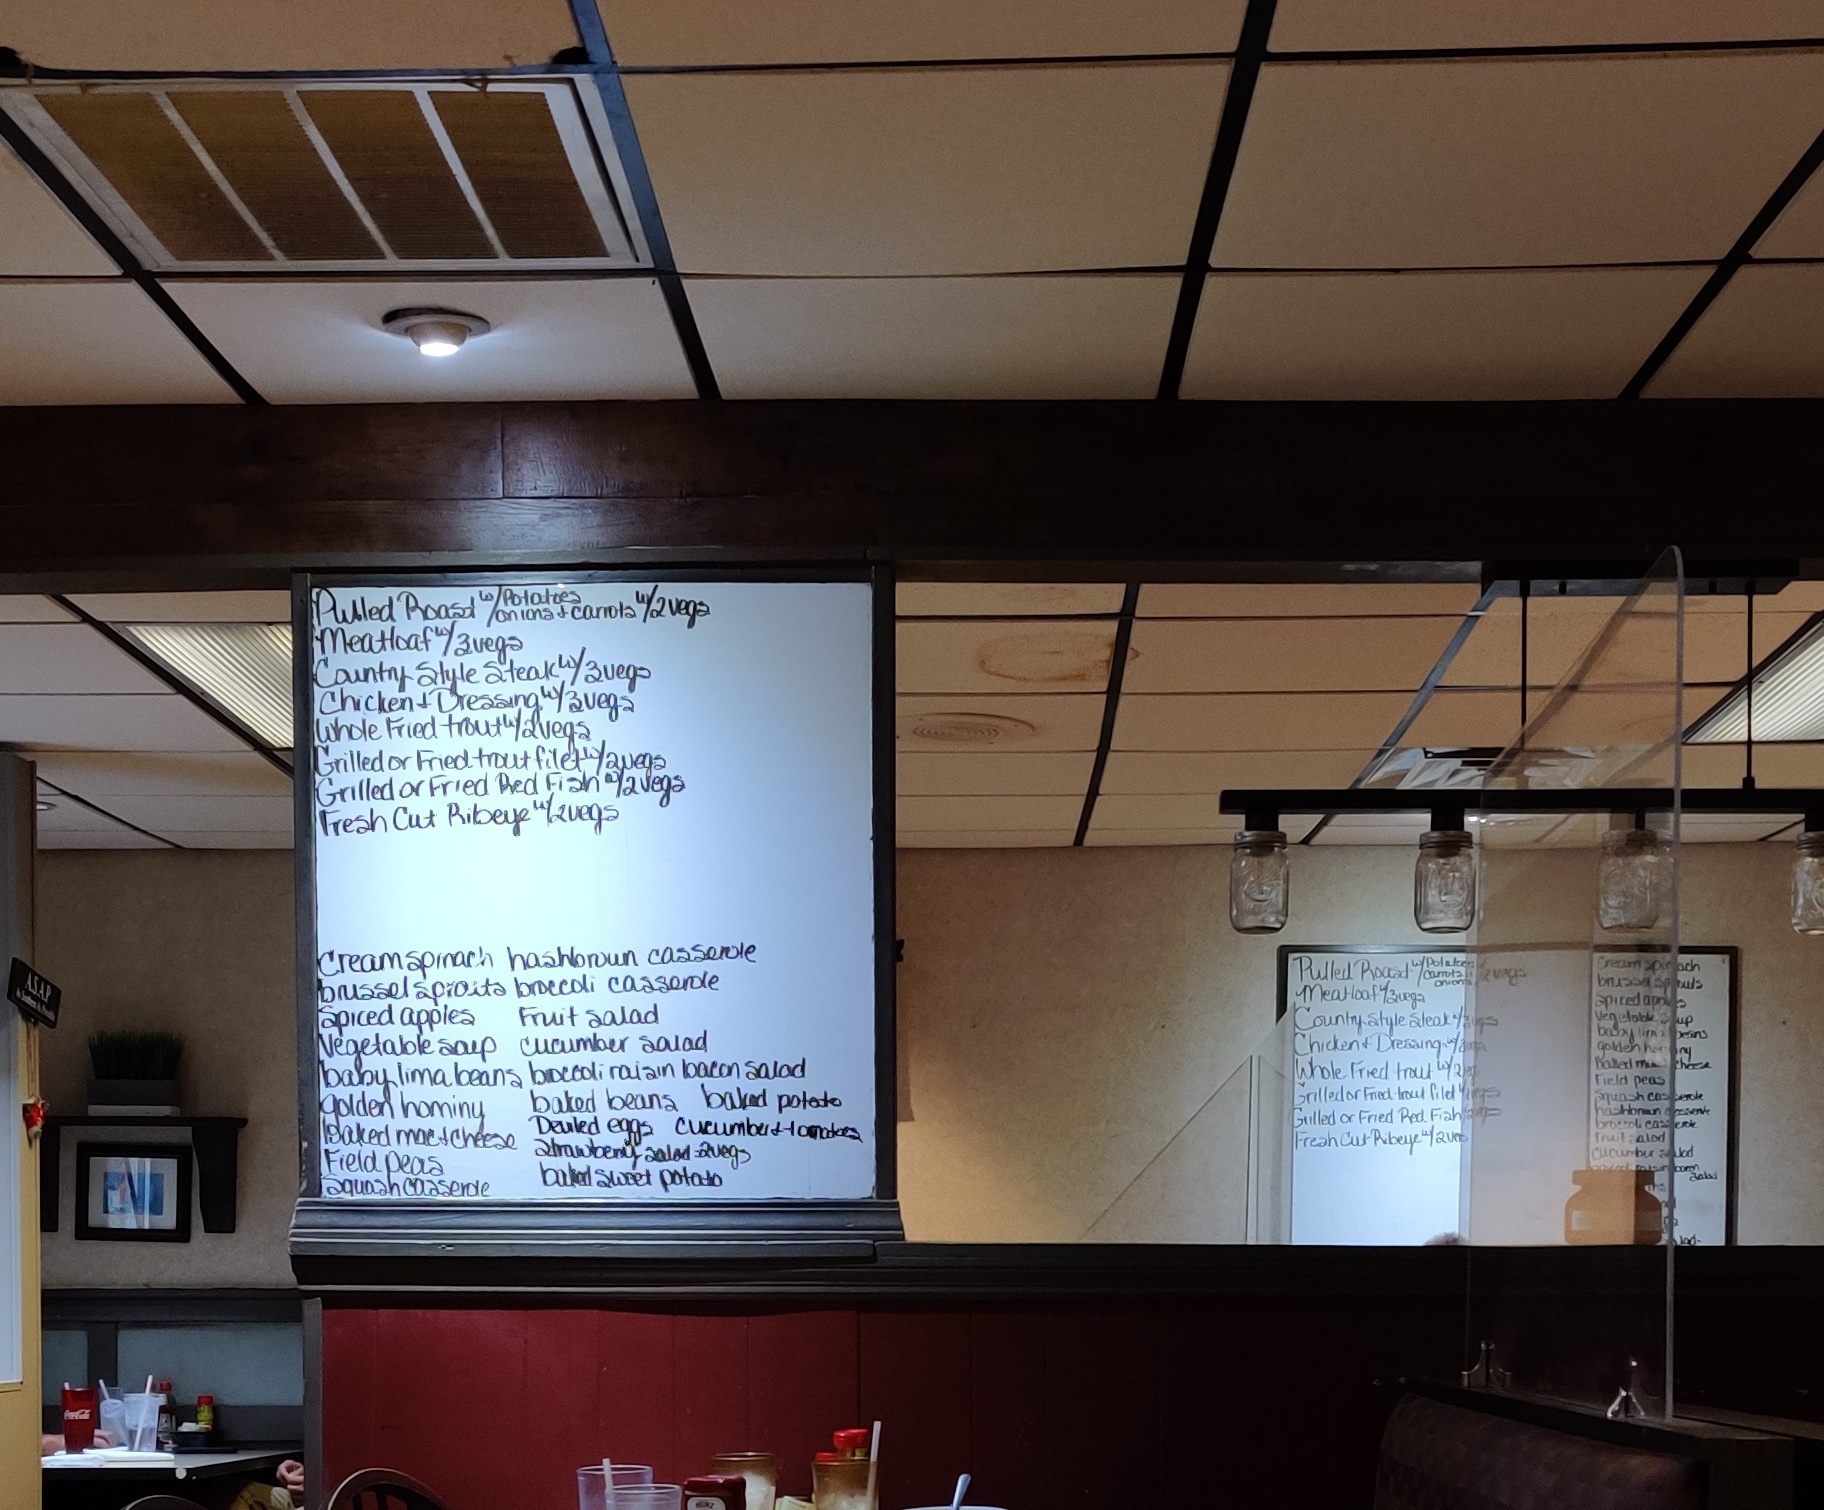 Pulled Roast w/ Potatoes onions + carrots w/ 2 vegs
Meatloaf w/ 3 vegs
Country Style Steak w/ 3 vegs
Chicken + Dressing w/ 3 vegs
Whole Fried trout w/ 2 vegs
Grilled or Fried trout filet w/ 2 vegs
Grilled or Fried Red Fish w/ 2 vegs
Fresh Cut Ribeye w/ 2 vegs
Cream spinach hashbrown casserole
brussel sprouts broccoli casserole
Spiced apples Fruit salad
Vegetable soup cucumber salad
baby lima beans broccoli raisin bacon salad
golden hominy baked beans baked potato
Baked mac + cheese Deviled eggs cucumber + tomatoes
Field peas strawberry salad = 2 vegs
Squash casserole baked sweet potato
Pulled Roast w/ Potatoes carrots onions 2 vegs
Meatloaf w/ 3 vegs
Country Style Steak w/ 3 vegs
Chicken + Dressing w/
Whole Fried trout w/ 2
Grilled or Fried trout filet
Grilled or Fried Red Fish
Fresh Cut Ribeye w/ 2 vegs
Cream spinach
brussel sprouts
Spiced apples
Vegetable soup
baby lima beans
golden hominy
Baked mac cheese
Field peas
Squash casserole
hashbrown casserole
broccoli casserole
Fruit salad
cucumber salad
raisin bacon salad
A.S.A.P
Coca-Cola
HEINZ